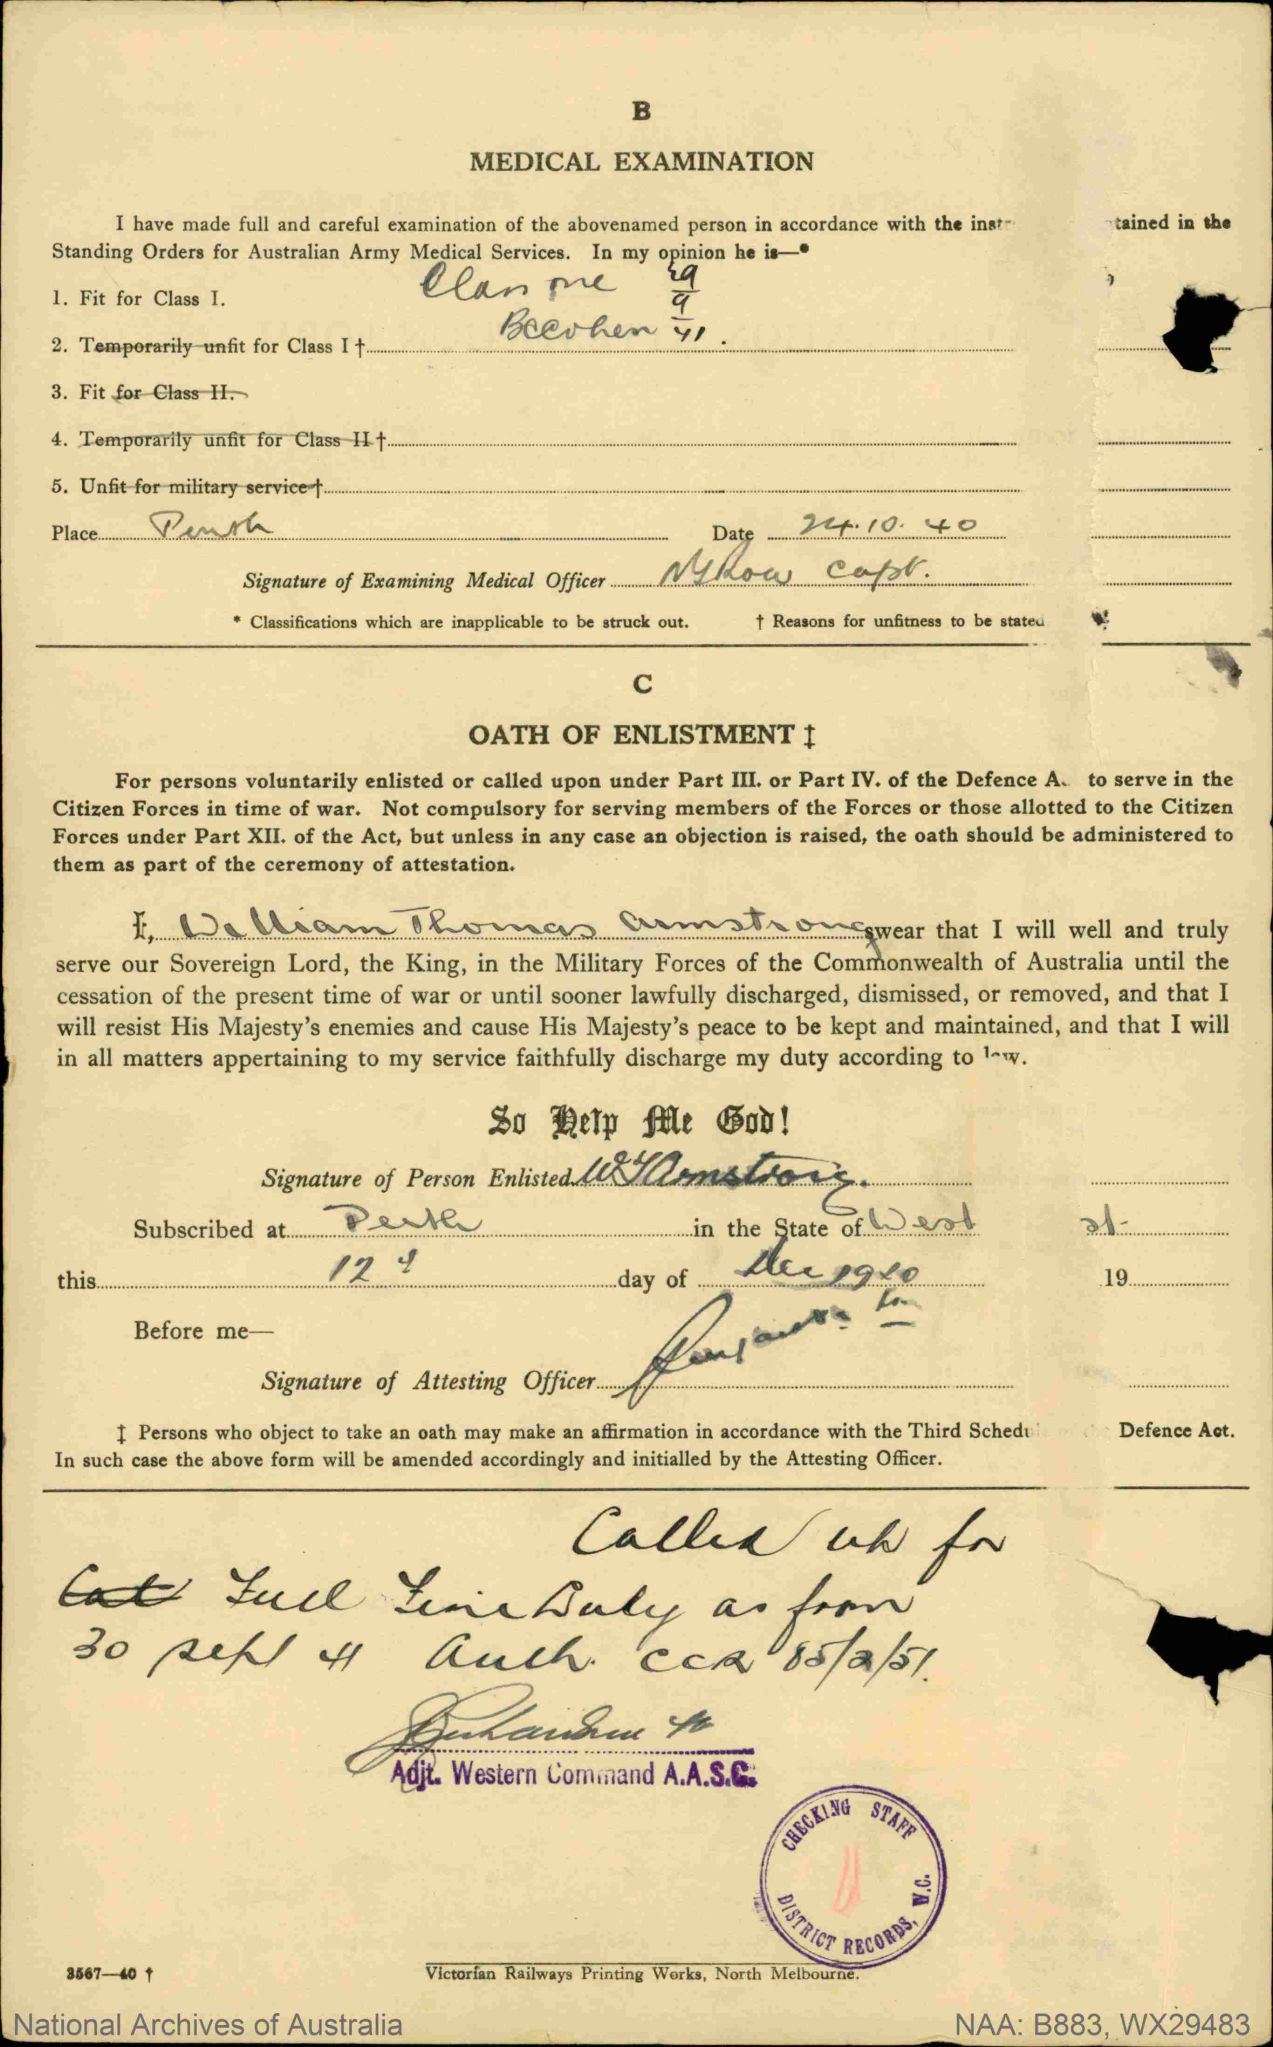 B
MEDICAL EXAMINATION
I have made full and careful examination of the abovenamed person in accordance with the instr tained in the
Standing Orders for Australian Army Medical Services. In my opinion he is—*
1. Fit for Class I. Class one 29/9/41
2. Temporarily unfit for Class I †
3. Fit for Class II.
4. Temporarily unfit for Class II †
5. Unfit for military service †
Place Perth Date 24.10.40
Signature of Examining Medical Officer Capt.
* Classifications which are inapplicable to be struck out. † Reasons for unfitness to be stated
C
OATH OF ENLISTMENT ‡
For persons voluntarily enlisted or called upon under Part III. or Part IV. of the Defence A. to serve in the
Citizen Forces in time of war. Not compulsory for serving members of the Forces or those allotted to the Citizen
Forces under Part XII. of the Act, but unless in any case an objection is raised, the oath should be administered to
them as part of the ceremony of attestation.
I, William Thomas Armstrong swear that I will well and truly
serve our Sovereign Lord, the King, in the Military Forces of the Commonwealth of Australia until the
cessation of the present time of war or until sooner lawfully discharged, dismissed, or removed, and that I
will resist His Majesty's enemies and cause His Majesty's peace to be kept and maintained, and that I will
in all matters appertaining to my service faithfully discharge my duty according to law.
So Help Me God!
Signature of Person Enlisted W T Armstrong.
Subscribed at Perth in the State of West
this 12 day of Dec 1940 19
Before me—
Signature of Attesting Officer
‡ Persons who object to take an oath may make an affirmation in accordance with the Third Schedu Defence Act.
In such case the above form will be amended accordingly and initialled by the Attesting Officer.
Called up for
Cat Full Time Duty as from
30 Sept 41 Auth. CCR 85/2/51.
Adjt. Western Command A.A.S.C.
CHECKING STAFF
DISTRICT RECORDS, W.C.
3567—40 †
Victorian Railways Printing Works, North Melbourne.
National Archives of Australia
NAA: B883, WX29483